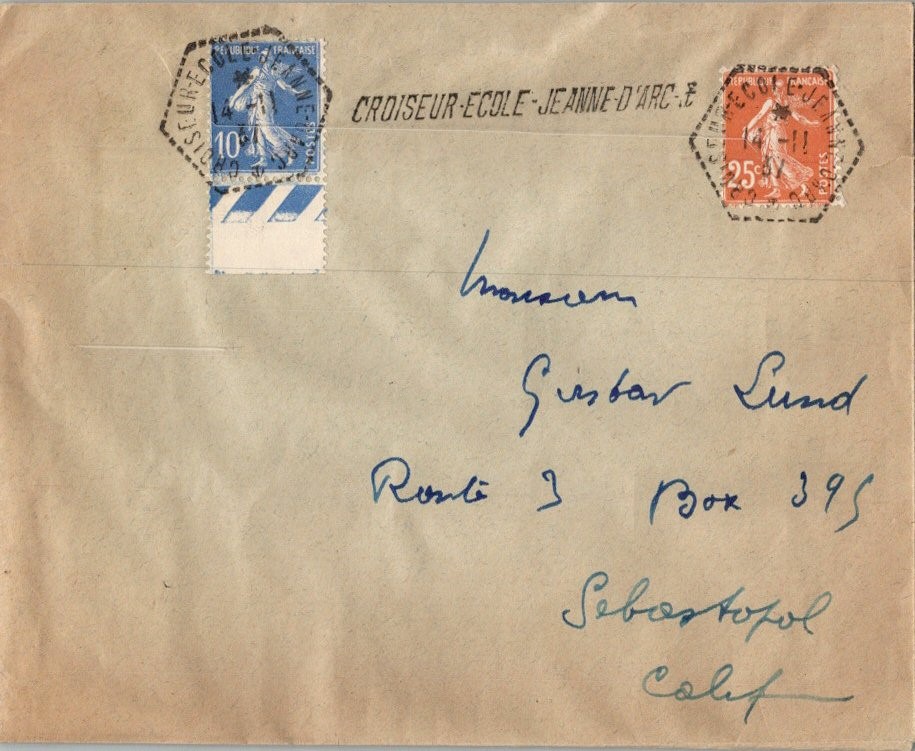 REPUBLIQUE FRANÇAISE
10c
POSTES
CROISEUR-ECOLE-JEANNE-D'ARC
14-11
CROISEUR-ECOLE-JEANNE-D'ARC-
REPUBLIQUE FRANÇAISE
25c
POSTES
CROISEUR-ECOLE-JEANNE-D'ARC
14-11
Monsieur
Gustav Lund
Route 3 Box 395
Sebastopol
Calif